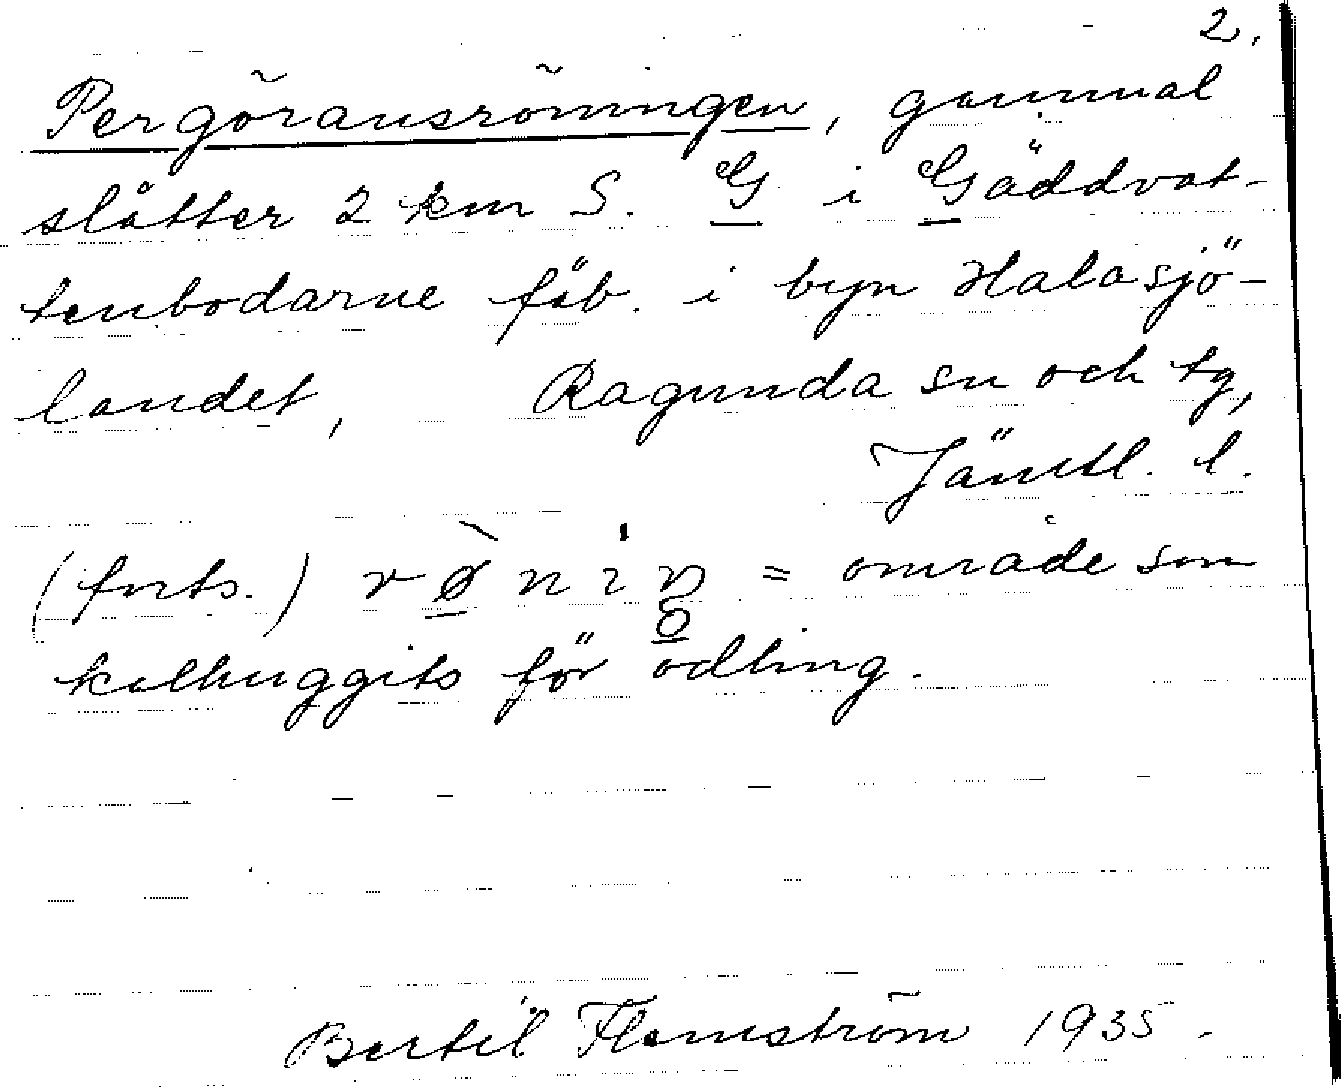 2.
Pergöransröningen, gammal
slåtter 2 km S. G i Gäddvat-
tenbodarne fäb. i byn Halasjö-
landet, Ragunda sn och tg,
Jämtl. l.
(forts.) = område som
kalhuggits för odling.
Bertil Flemström 1935.